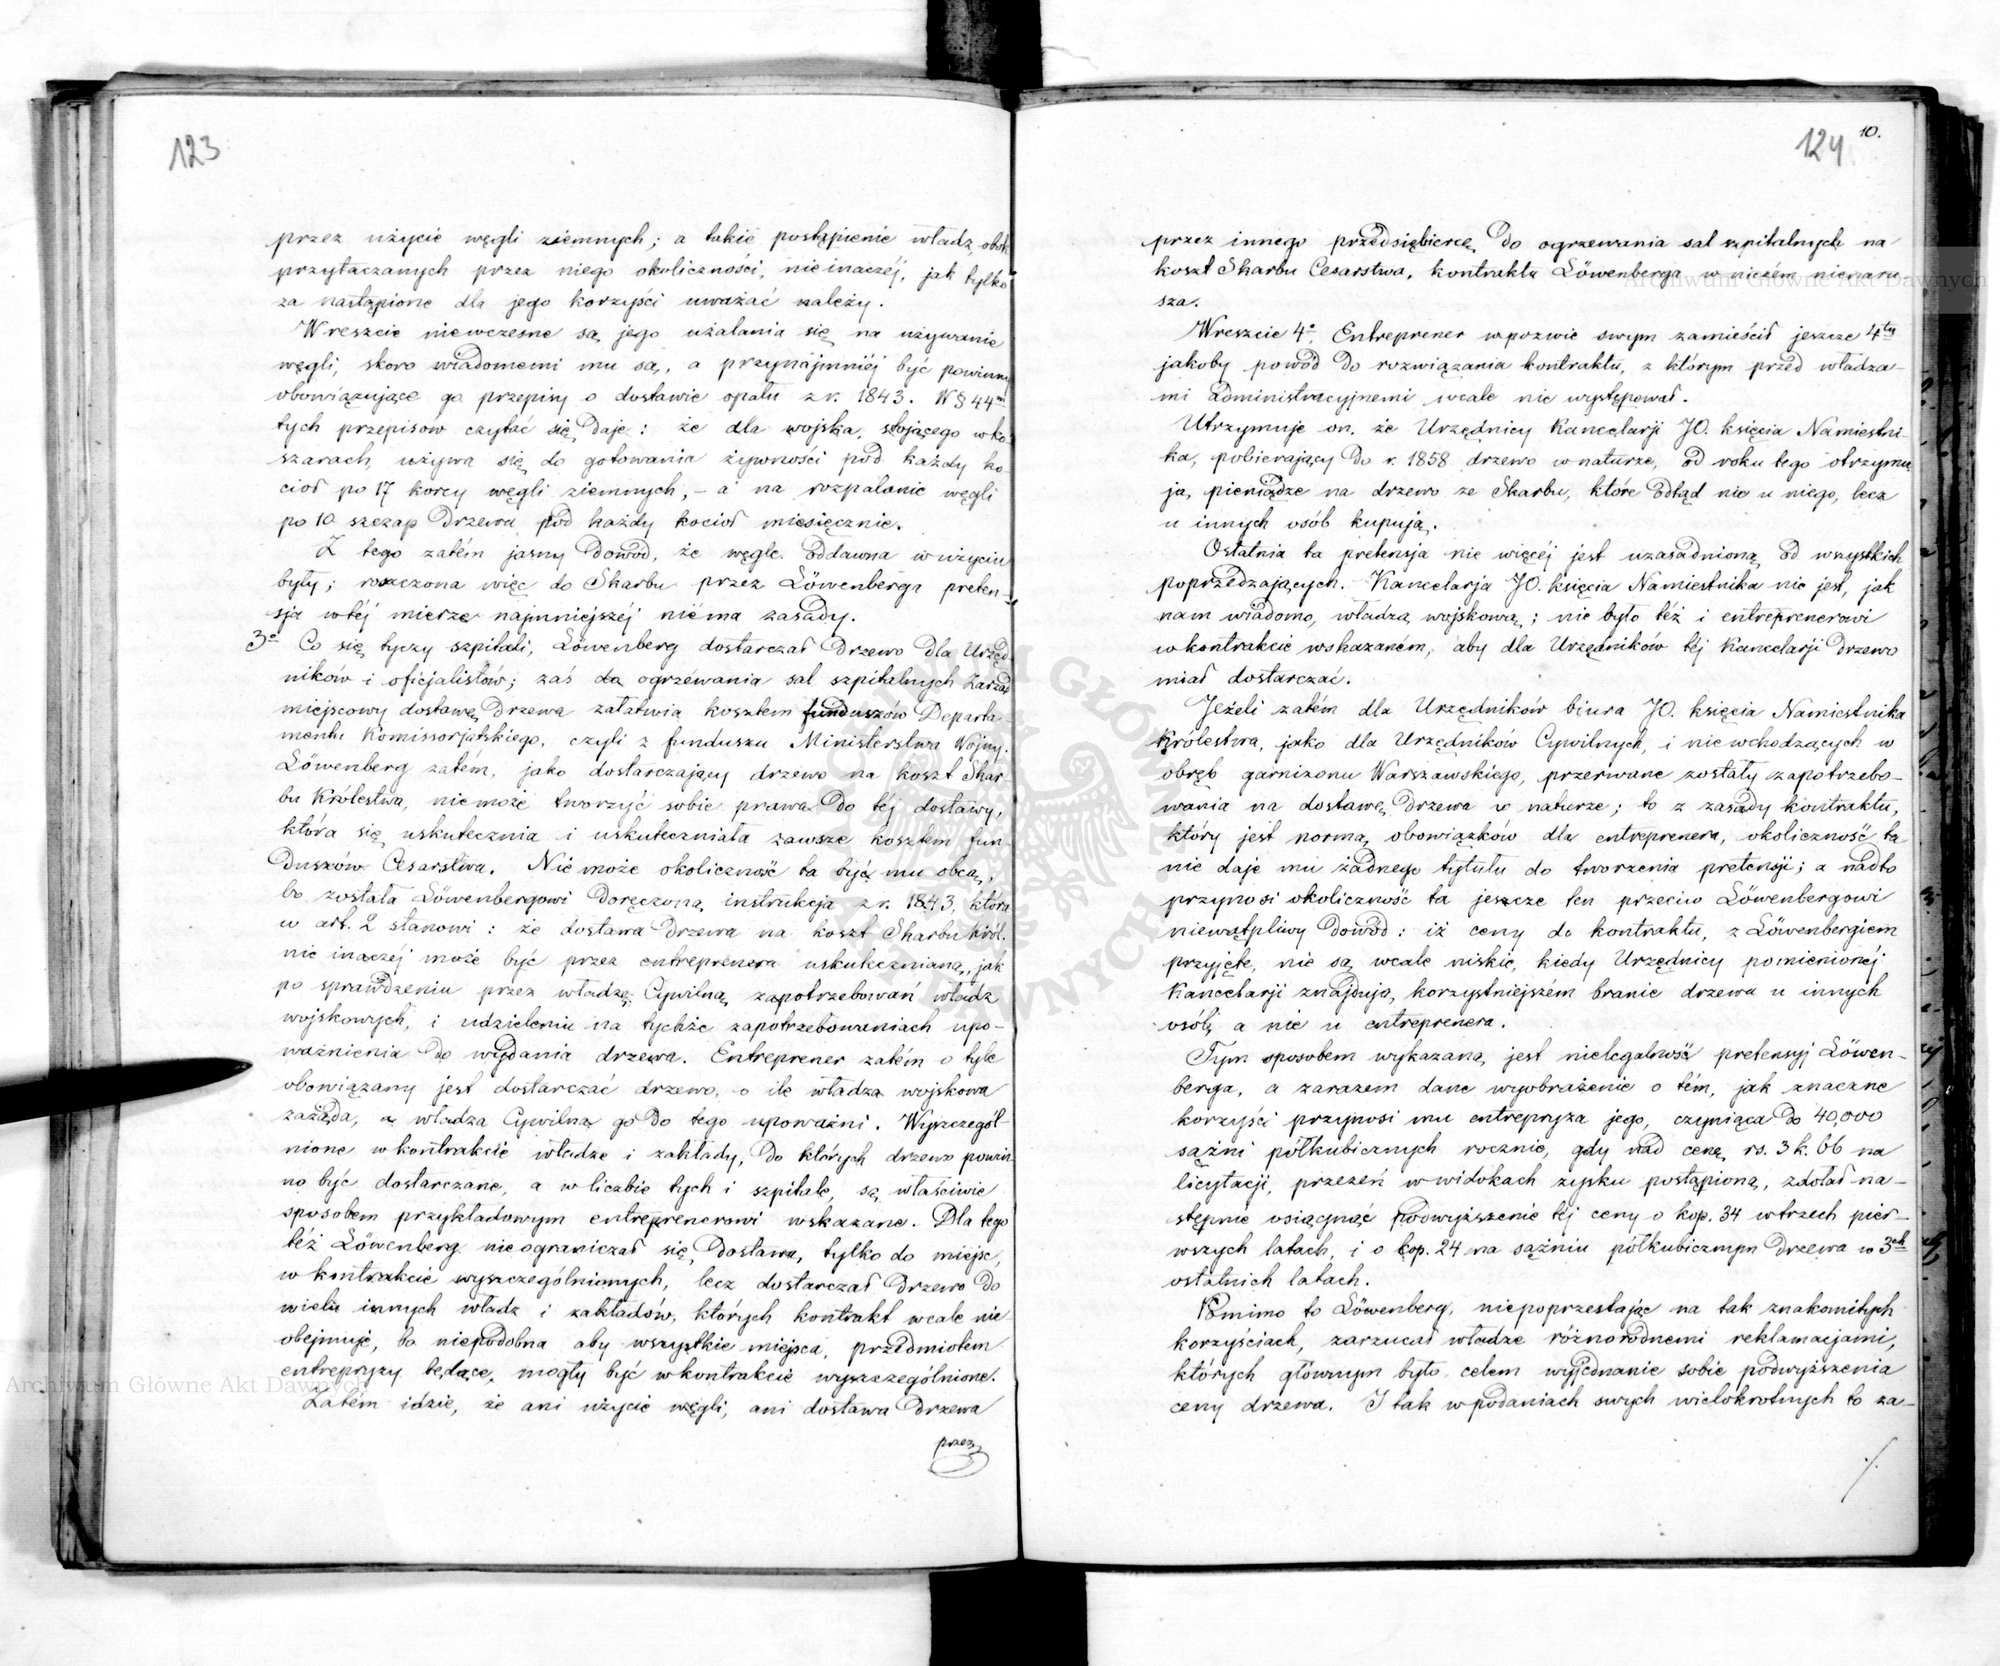 123
przez użycie węgli ziemnych; a takie postąpienie władz, obok
przytaczanych przez niego okoliczności, nieinaczéj, jak tylko
za nastąpione dla jego korzyści uważać należy.
Wreszcie niewczesne są jego użalania się na używanie
węgli, skoro wiadomemi mu są, a przynajmniéj być powinny
obowiązujące go przepisy o dostawie opału z r. 1843. W § 44m
tych przepisów czytać się daje: że dla wojska, stojącego w ko-
szarach, używa się do gotowania żywności pod każdy ko-
cioł po 17 korcy węgli ziemnych, – a na rozpalanie węgli
po 10 szczap drzewa pod każdy kocioł miesięcznie.
Z tego zatém jasny dowód, że węgle oddawna w użyciu
były; roszczona więc do Skarbu przez Löwenberga preten-
sja w téj mierze najmniejszéj niema zasady.
3o Co się tyczy szpitali, Löwenberg dostarczał drzewo dla Urzęd-
ników i oficjalistów; zaś do ogrzéwania sal szpitalnych Zarząd
miejscowy dostawę drzewa załatwia kosztem funduszów Departa-
mentu Komissorjatskiego, czyli z funduszu Ministerstwa Wojny.
Löwenberg zatem, jako dostarczający drzewo na koszt Skar-
bu Królestwa, niemoże tworzyć sobie prawa do téj dostawy,
która się uskutecznia i uskuteczniała zawsze kosztem fun-
duszów Cesarstwa. Nie może okoliczność ta być mu obcą,
bo została Löwenbergowi doręczoną instrukcja z r. 1843, która
w art. 2 stanowi: że dostawa drzewa na koszt Skarbu Król.
nie inaczéj może być przez entreprenera uskutecznianą, jak
po sprawdzeniu przez władzę Cywilną zapotrzebowań władz
wojskowych, i udzieleniu na tychże zapotrzebowaniach upo-
ważnienia do wydania drzewa. Entreprener zatém o tyle
obowiązany jest dostarczać drzewo, o ile władza wojskowa
zażąda, a władza Cywilna go do tego upoważni. Wyszczegól-
nione w kontrakcie władze i zakłady, do których drzewo powin-
no być dostarczane, a w liczbie tych i szpitale, są właściwie
sposobem przykładowym entreprenerowi wskazane. Dla tego
téż Löwenberg nieograniczał się dostawą tylko do miejsc,
w kontrakcie wyszczególnionych, lecz dostarczał drzewo do
wielu innych władz i zakładów, których kontrakt wcale nie
obejmuje, bo niepodobna aby wszystkie miejsca, przedmiotem
entrepryzy będące, mogły być w kontrakcie wyszczególnione.
Zatém idzie, że ani użycie węgli, ani dostawa drzewa
przez
124
10.
przez innego przedsiębiercę do ogrzewania sal szpitalnych na
koszt Skarbu Cesarstwa, kontraktu Löwenberga w niczém nienaru-
sza.
Wreszcie 4o Entreprener w pozwie swym zamieścił jeszcze 4ty
jakoby powód do rozwiązania kontraktu, z którym przed władza-
mi administracyjnemi wcale nie występował.
Utrzymuje on, że Urzędnicy Kancelarji JO. księcia Namiestni-
ka, pobierający do r. 1858 drzewo w naturze, od roku tego otrzymu-
ją pieniądze na drzewo ze Skarbu, które odtąd nie u niego, lecz
u innych osób kupują.
Ostatnia ta pretensja nie więcéj jest uzasadnioną od wszystkich
poprzedzających. Kancelarja JO. księcia Namiestnika nie jest, jak
nam wiadomo, władzą wojskową; nie było téż i entreprenerowi
w kontrakcie wskazaném, aby dla Urzędników téj Kancelarji drzewo
miał dostarczać.
Jeżeli zatém dla Urzędników biura JO. księcia Namiestnika
Królestwa, jako dla Urzędników Cywilnych, i nie wchodzących w
obręb garnizonu Warszawskiego, przerwane zostały zapotrzebo-
wania na dostawę drzewa w naturze; to z zasady kontraktu,
który jest normą obowiązków dla entreprenera, okoliczność ta
nie daje mu żadnego tytułu do tworzenia pretensji; a nadto
przynosi okoliczność ta jeszcze ten przeciw Löwenbergowi
niewątpliwy dowód: iż ceny do kontraktu, z Löwenbergiem
przyjęte, nie są wcale niskie, kiedy Urzędnicy pomienionéj
Kancelarji znajdują korzystniejszém branie drzewa u innych
osób, a nie u entreprenera.
Tym sposobem wykazaną jest nielegalność pretensyj Löwen-
berga, a zarazem dane wyobrażenie o tém, jak znaczne
korzyści przynosi mu entrepryza jego, czyniąca do 40,000
sążni półkubicznych rocznie, gdy nad cenę rs. 3 k. 66 na
licytacji, przezeń w widokach zysku postąpioną, zdołał na-
stępnie osiągnąć podwyższenie téj ceny o kop. 34 w trzech pier-
wszych latach, i o kop. 24 na sążniu półkubicznym drzewa w 3ch
ostatnich latach.
Pomimo to Löwenberg, niepoprzestając na tak znakomitych
korzyściach, zarzucał władze różnorodnemi reklamacjami,
których głównym było celem wyjednanie sobie podwyższenia
ceny drzewa. I tak w podaniach swych wielokrotnych to za-
./.
Archiwum Główne Akt Dawnych
Archiwum Główne Akt Dawnych